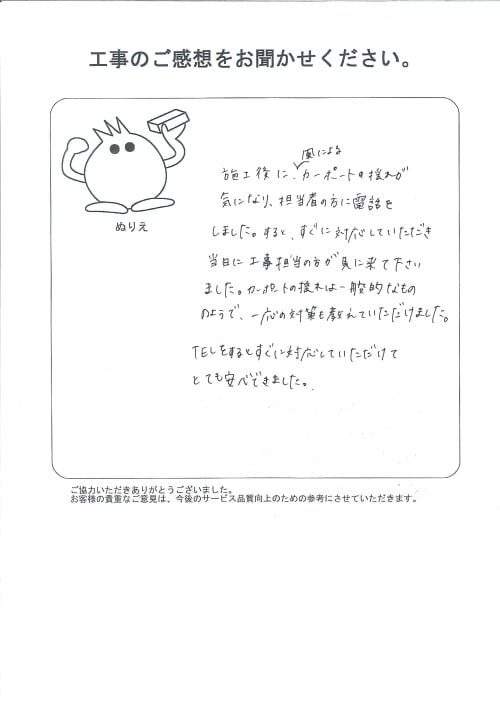 工事のご感想をお聞かせください。
ぬりえ
風による
施工後に、カーポートの揺れが
気になり、担当者の方に電話を
しました。すると、すぐに対応していただき
当日に工事担当の方が見に来て下さい
ました。カーポートの揺れは一般的なもの
のようで、一応の対策も教えていただけました。
TELをするとすぐに対応していただけて
とても安心できました。
ご協力いただきありがとうございました。
お客様の貴重なご意見は、今後のサービス品質向上のための参考にさせていただきます。